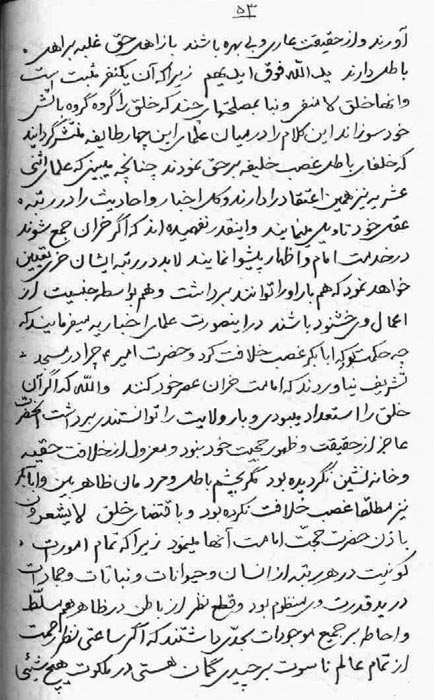 ۵۳
آورند و از حقیقت عاری و بی بهره باشند باز اهل حق غلبه بر اهل
باطل دارند ید الله فوق ایدیهم زیرا که آن یکنفر مثبت است
و انها خلق لا منفی و نبا بمصلحتهای چند که خلق را گروه گروه باتش
خود سوزاند این کلام را در میان علمای این چهار طایفه منتشر گردانید
که خلفای باطل غصب خلیفه بر حق نمودند چنانچه میبینی که علما اثنی
عشریه نیز همین اعتقاد را دارند و کل اخبار و احادیث را در رتبه
عقل خود تاویل مینمایند و اینقدر نفهمیده اند که اگر خران جمع شوند
در خدمت امام و اظهار پیشوا نمایند لابد در رتبه ایشان خری تعیین
خواهد نمود که هم بار او را توانند برداشت و هم بواسطه جنسیت از
اعمال وی خشنود باشند در اینصورت علمای اخباریه میفرمایند که
چه حکمت که ابابکر غصب خلافت کرد و حضرت امیر ع چرا در مسجد
تشریف نیاوردند که امامت خران عصر خود کنند والله که اگر آن
خلق را استعداد میبودی و بار ولایت را توانستندی برداشت آنحضرت
عاجز از حقیقت و ظهور حجیت خود نبود و معزول از خلافت حقیه
و خانه نشین نگردیده بود مگر بچشم باطل و مردمان ظاهر بین و ابابکر
نیز مطلقا غصب خلافت نکرده بود و باقتضای خلق لا یشعرون
باذن حضرت حجت امامت آنها مینمود زیرا که تمام امورات
کونیت در هر رتبه از انسان و حیوانات و نباتات و جمادات
در ید قدرت وی منظوم بود و قطع نظر از باطن در ظاهر هم مسلط
و احاطه بر جمیع موجودات بحدی داشتند که اگر ساعتی نظر رحمت
از تمام عالم ناسوت برچیدی گمان هستی در ملکوت هیچ شیئی